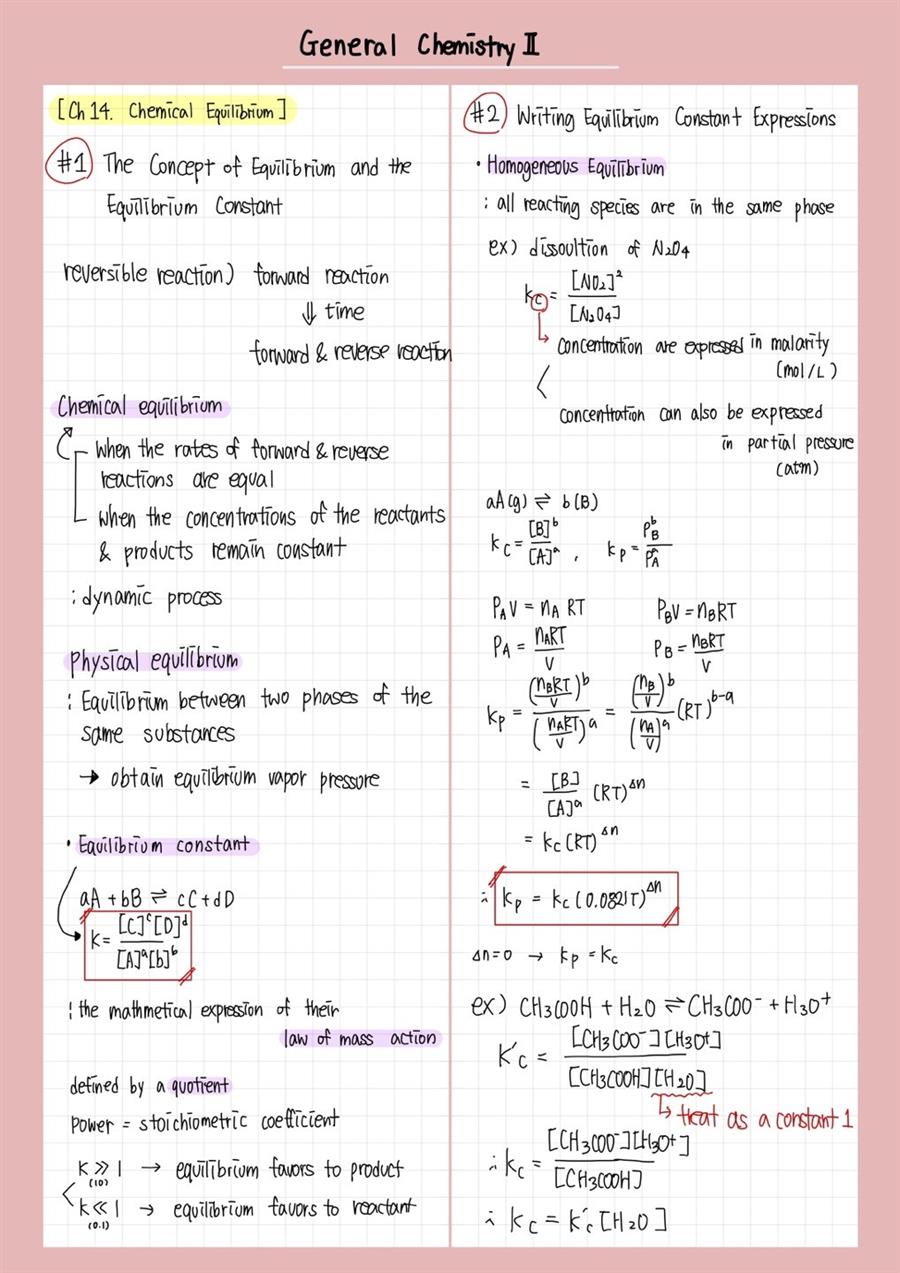 General Chemistry II
[Ch 14. Chemical Equilibrium]
#1 The Concept of Equilibrium and the
Equilibrium Constant
reversible reaction) forward reaction
⇓ time
forward & reverse reaction
Chemical equilibrium
When the rates of forward & reverse
reactions are equal
When the concentrations of the reactants
& products remain constant
: dynamic process
Physical equilibrium
: Equilibrium between two phases of the
same substances
→ obtain equilibrium vapor pressure
• Equilibrium constant
aA + bB ⇌ cC + dD
K = [C]^c [D]^d / [A]^a [b]^b
: the mathmetical expression of their
law of mass action
defined by a quotient
power = stoichiometric coefficient
K ≫ 1 → equilibrium favors to product
(10)
K ≪ 1 → equilibrium favors to reactant
(0.1)
#2 Writing Equilibrium Constant Expressions
• Homogeneous Equilibrium
: all reacting species are in the same phase
ex) dissoultion of N2O4
Kc = [NO2]² / [N2O4]
concentration are expressed in malarity
(mol/L)
concentration can also be expressed
in partial pressure
(atm)
aA(g) ⇌ b(B)
Kc = [B]^b / [A]^a , Kp = P_B^b / P_A^a
P_A V = n_A RT P_B V = n_B RT
P_A = n_A RT / V P_B = n_B RT / V
Kp = (n_B RT / V)^b / (n_A RT / V)^a = (n_B / V)^b / (n_A / V)^a (RT)^b-a
= [B] / [A]^a (RT)^Δn
= Kc (RT)^Δn
∴ Kp = Kc (0.0821T)^Δn
Δn=0 → Kp = Kc
ex) CH3COOH + H2O ⇌ CH3COO⁻ + H3O⁺
K'c = [CH3COO⁻][CH3O⁺] / [CH3COOH][H2O]
↳ treat as a constant 1
∴ Kc = [CH3COO⁻][H3O⁺] / [CH3COOH]
∴ Kc = K'c [H2O]